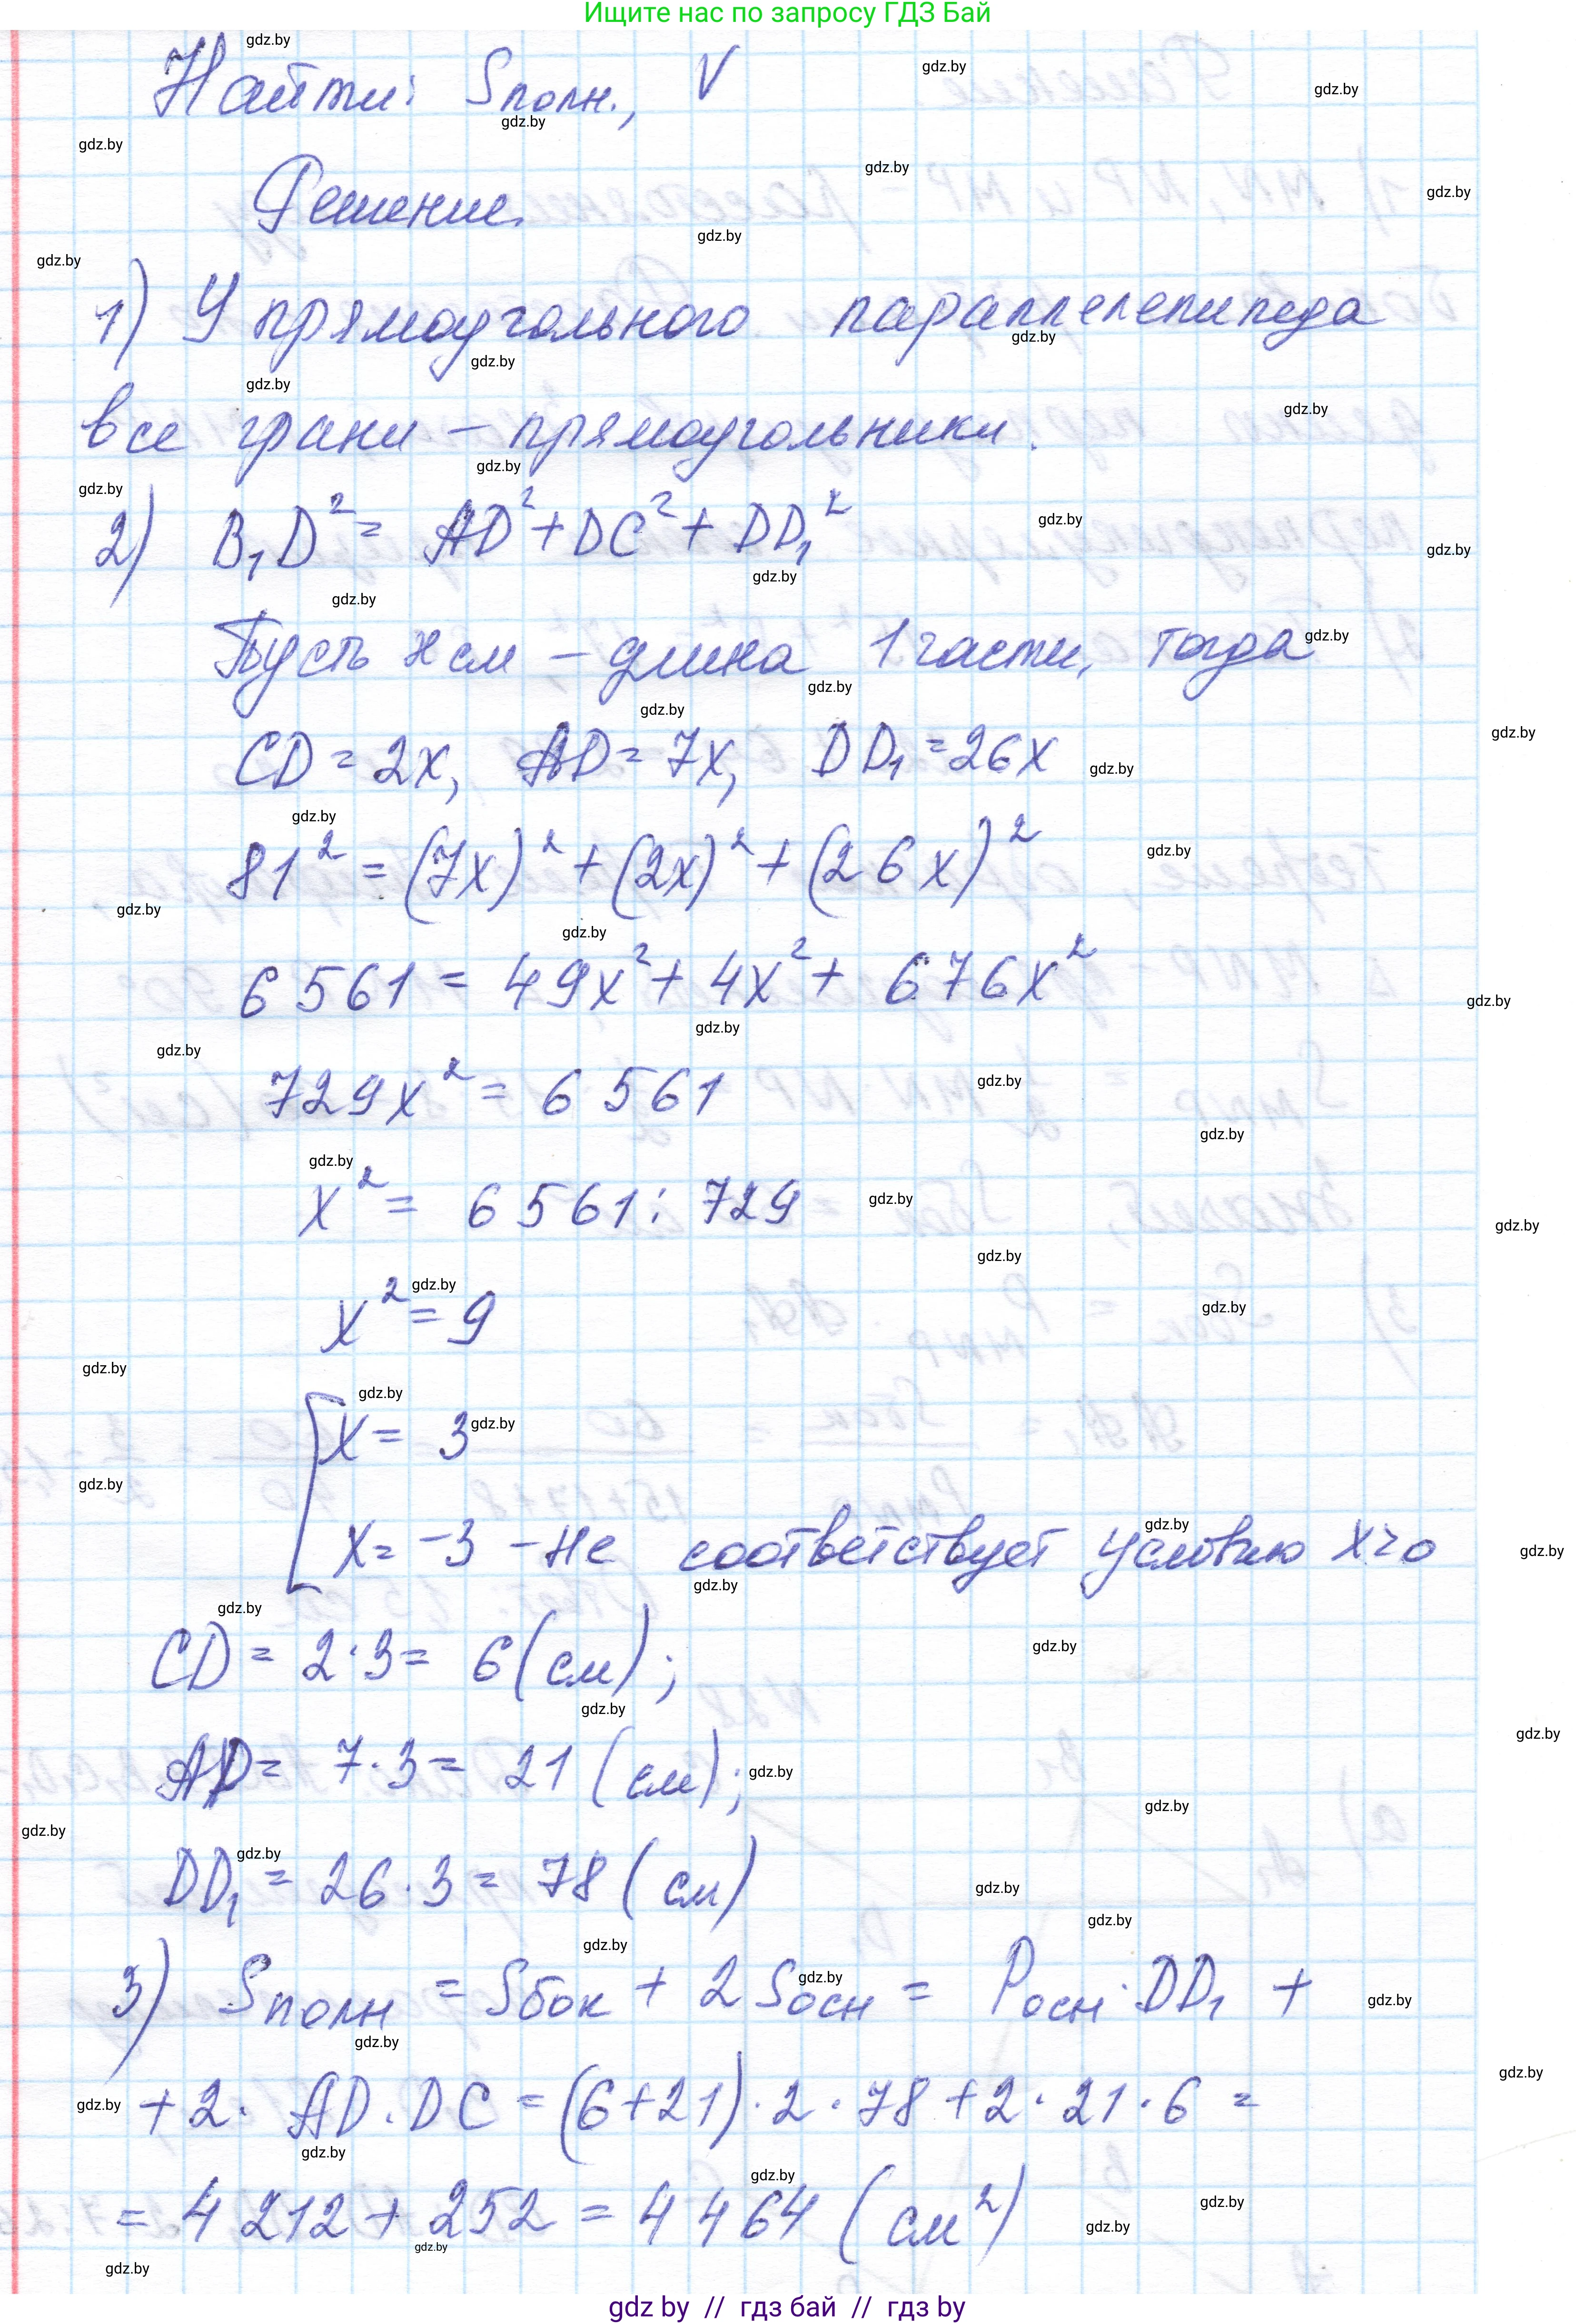 Ищите нас по запросу ГДЗ Бай
Найти: Sполн., V
Решение.
1) У прямоугольного параллелепипеда
все грани – прямоугольники.
2) B₁D² = AD² + DC² + DD₁²
Пусть x см – длина 1 части, тогда
CD = 2x, AD = 7x, DD₁ = 26x
81² = (7x)² + (2x)² + (26x)²
6561 = 49x² + 4x² + 676x²
729x² = 6561
x² = 6561 : 729
x² = 9
x = 3
x = -3 – не соответствует условию x>0
CD = 2·3 = 6 (см);
AD = 7·3 = 21 (см);
DD₁ = 26·3 = 78 (см)
3) Sполн = Sбок + 2Sосн = Pосн·DD₁ +
+ 2·AD·DC = (6+21)·2·78 + 2·21·6 =
= 4212 + 252 = 4464 (см²)
gdz by // гдз бай // гдз by